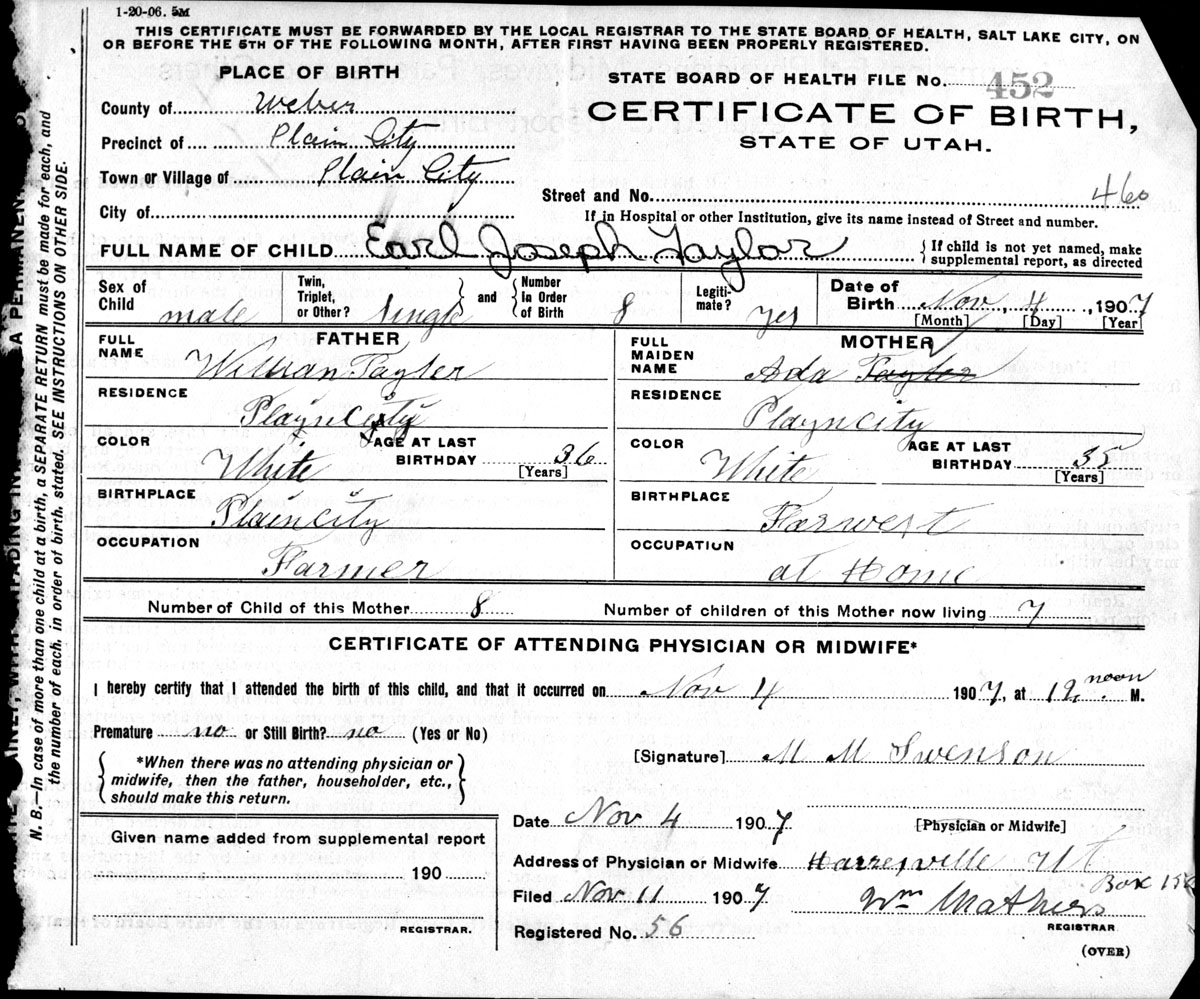 1-20-06. 5M
THIS CERTIFICATE MUST BE FORWARDED BY THE LOCAL REGISTRAR TO THE STATE BOARD OF HEALTH, SALT LAKE CITY, ON
OR BEFORE THE 5TH OF THE FOLLOWING MONTH, AFTER FIRST HAVING BEEN PROPERLY REGISTERED.
PLACE OF BIRTH
STATE BOARD OF HEALTH FILE No. 452
County of Weber
CERTIFICATE OF BIRTH,
Precinct of Plain City
STATE OF UTAH.
Town or Village of Plain City
Street and No. 460
City of
If in Hospital or other Institution, give its name instead of Street and number.
FULL NAME OF CHILD Earl Joseph Taylor { If child is not yet named, make supplemental report, as directed
Sex of Child male Twin, Triplet, or Other? Single and Number In Order of Birth 8 Legiti-mate? yes Date of Birth Nov, 4, 1907
[Month] [Day] [Year]
FATHER
MOTHER
FULL NAME William Tayler
FULL MAIDEN NAME Ada Tayler
RESIDENCE Playn City
RESIDENCE Playncity
COLOR White AGE AT LAST BIRTHDAY 36 [Years]
COLOR White AGE AT LAST BIRTHDAY 35 [Years]
BIRTHPLACE Plaincity
BIRTHPLACE Farwest
OCCUPATION Farmer
OCCUPATION at Home
Number of Child of this Mother 8 Number of children of this Mother now living 7
CERTIFICATE OF ATTENDING PHYSICIAN OR MIDWIFE*
I hereby certify that I attended the birth of this child, and that it occurred on Nov 4 1907, at 12 noon M.
Premature no or Still Birth? no (Yes or No)
[Signature] M M Swenson
*When there was no attending physician or
midwife, then the father, householder, etc.,
should make this return.
Date Nov 4 1907
[Physician or Midwife]
Given name added from supplemental report
190
REGISTRAR.
Address of Physician or Midwife Harresville Ut
Box
Filed Nov 11 1907 Wm Mathers
REGISTRAR
Registered No. 56
(OVER)
N. B.—In case of more than one child at a birth, a SEPARATE RETURN must be made for each, and
the number of each, in order of birth, stated. SEE INSTRUCTIONS ON OTHER SIDE.
A PERMANEN